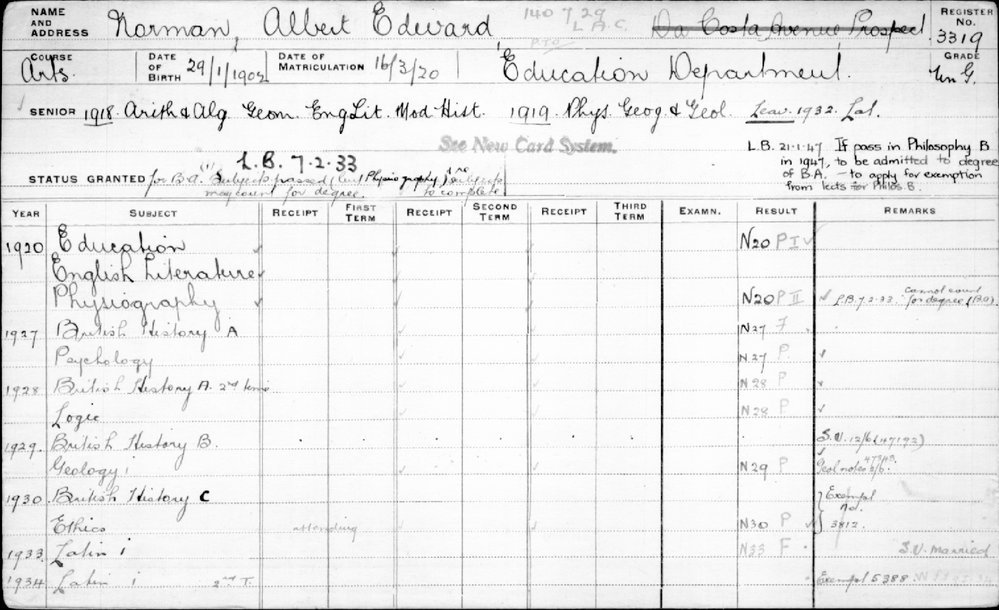 NAME AND ADDRESS Norman, Albert Edward 140 7.29 L.A.C. P.T.O Da Costa Avenue Prospect. REGISTER No. 3319
COURSE Arts. DATE OF BIRTH 29/1/1902 DATE OF MATRICULATION 16/3/20 Education Department. GRADE Un G.
SENIOR 1918. Arith & Alg. Geom. Eng Lit. Mod Hist. 1919. Phys. Geog & Geol. Leav. 1932. Lat.
See New Card System.
L.B. 7.2.33
STATUS GRANTED for B.A. (1) Subjects passed (but Physiography) may count for degree. to complete.
L.B. 21.1.47 If pass in Philosophy B
in 1947, to be admitted to degree
of B.A. — to apply for exemption
from lects for Philos B.
YEAR SUBJECT RECEIPT FIRST TERM RECEIPT SECOND TERM RECEIPT THIRD TERM EXAMN. RESULT REMARKS
1920 Education N20 P I
English Literature
Physiography N20 P II L.B. 7.2.33. cannot count for degree (B.A).
1927 British History A N27 F
Psychology N27 P
1928 British History A. 2nd time N28 P
Logic N28 P
1929. British History B. S.V. 12/6 (47192)
Geology 1 N29 P Geol notes
1930 British History C Exempl
Ethics attending N30 P 3812.
1933. Latin i N33 F S.V. married
1934 Latin i 2nd T. Exempl 5388